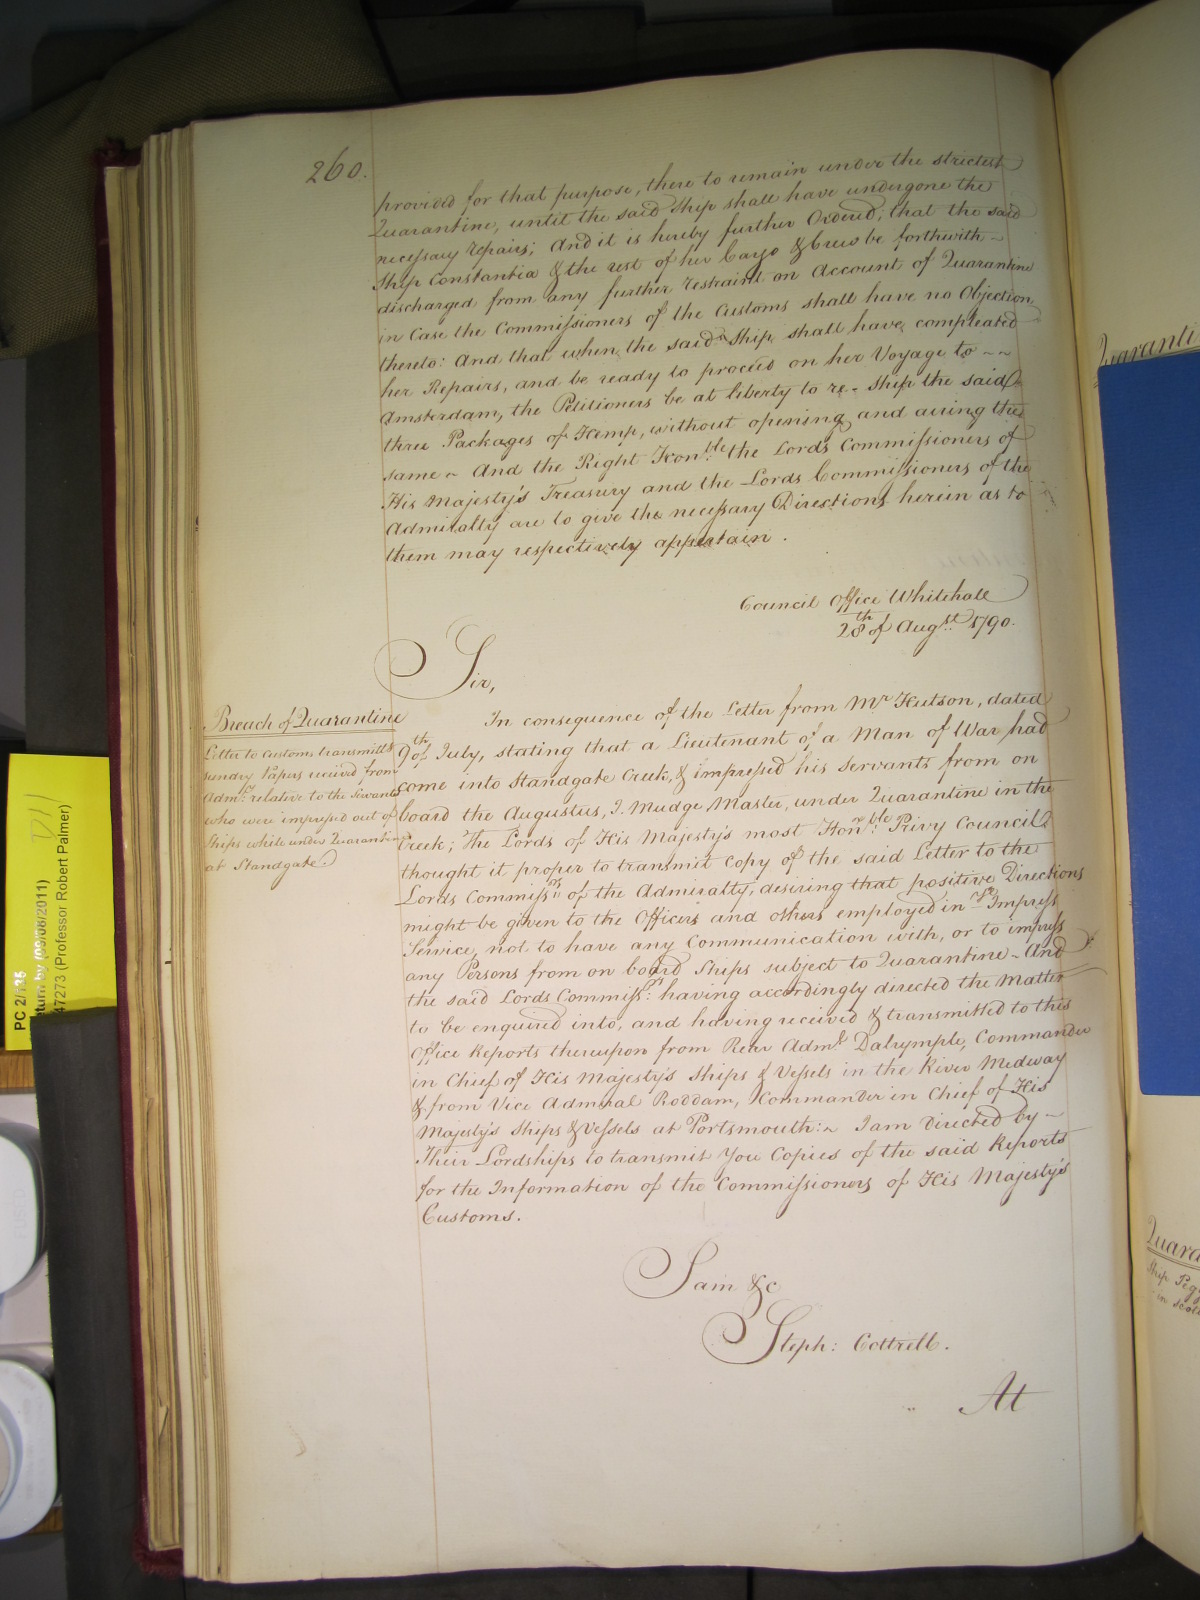 260.
provided for that purpose, there to remain under the strictest
Quarantine, until the said Ship shall have undergone the
necessary repairs; And it is hereby further Ordered, that the said
Ship Constantia & the rest of her Cargo & Crew be forthwith ~
discharged from any further restraint on Account of Quarantine
in Case the Commissioners of the Customs shall have no Objection
thereto: And that when the said Ship shall have compleated
her Repairs, and be ready to proceed on her Voyage to ~ ~
Amsterdam, the Petitioners be at liberty to re-Ship the said
three Packages of Hemp, without opening and airing the
same ~ And the Right Honble. the Lords Commissioners of
His Majesty's Treasury and the Lords Commissioners of the
Admiralty are to give the necessary Directions herein as to
them may respectively appertain.
Council Office Whitehall
28th of Augst. 1790.
Sir,
Breach of Quarantine
Letter to Customs transmitts
sundry Papers received from
Admty. relative to the Servants
who were impressed out of
Ships while under Quarantine
at Standgate.
In consequence of the Letter from Mr Hutson, dated
9th of July, stating that a Lieutenant of a Man of War had
come into Standgate Creek, & impressed his servants from on
board the Augustus, J. Mudge Master, under Quarantine in the
Creek; The Lords of His Majesty's most Honble. Privy Council
thought it proper to transmit Copy of the said Letter to the
Lords Commissrs. of the Admiralty, desiring that positive Directions
might be given to the Officers and others employed in ye Impress
Service, not to have any Communication with, or to impress
any Persons from on board Ships subject to Quarantine ~ And
the said Lords Commissrs. having accordingly directed the Matter
to be enquired into, and having received & transmitted to this
Office Reports thereupon from Rear Adml. Dalrymple, Commander
in Chief of His Majesty's Ships & Vessels in the River Medway
& from Vice Admiral Roddam, Commander in Chief of His
Majesty's Ships & Vessels at Portsmouth: ~ I am directed by ~
Their Lordships to transmit You Copies of the said Reports
for the Information of the Commissioners of His Majesty's
Customs.
I am &c
Steph: Cottrell.
At
Quaranti
Quara
Ship Peg
in
PC 2/135
return by (09/08/2011)
47273 (Professor Robert Palmer)